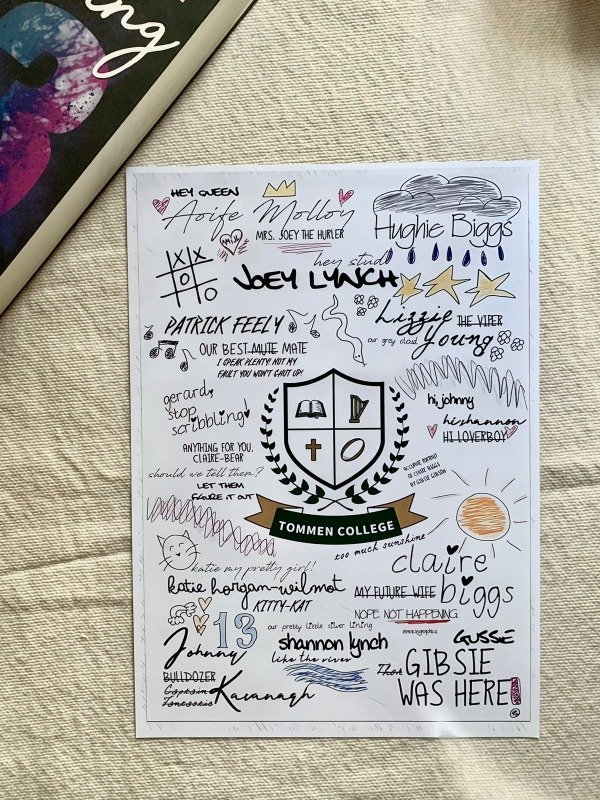 ng
HEY QUEEN
Aoife Molloy
MRS. JOEY THE HURLER
Hughie Biggs
X X
X O
O
hey stud
JOEY LYNCH
PATRICK FEELY
OUR BEST MUTE MATE
I SPEAK PLENTY! NOT MY
FAULT YOU WON'T SHUT UP!
Lizzie THE VIPER
our grey cloud Young
gerard,
stop
scribbling!
hi johnny
hi shannon
HI LOVERBOY
ANYTHING FOR YOU,
CLAIRE-BEAR
should we tell them?
LET THEM
FIGURE IT OUT
ACCURATE PORTRAIT
OF CLAIRE BIGGS
BY GIBSIE GIBSON
TOMMEN COLLEGE
too much sunshine
claire
biggs
MY FUTURE WIFE
NOPE. NOT HAPPENING.
katie my pretty girl!
katie horgan-wilmot
KITTY-KAT
13
our pretty little silver lining
shannon lynch
like the river
Johnny
BULLDOZER
Kavanagh
GUSSIE
Thor
GIBSIE
WAS HERE!